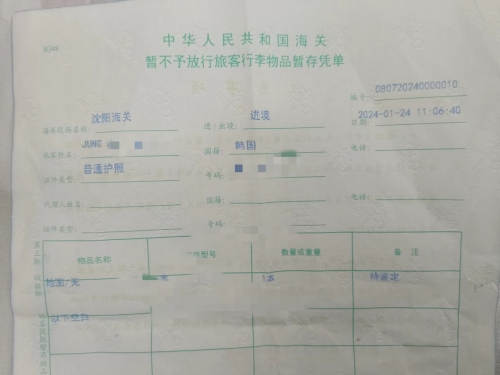 中华人民共和国海关
暂不予放行旅客行李物品暂存凭单
编号: 080720240000010
海关现场名称: 沈阳海关 进/出境: 进境 日期: 2024-01-24 11:06:40
旅客姓名: JUNG 国籍: 韩国 电话:
证件类型: 普通护照 号码:
代理人姓名: 国籍: 电话:
证件类型: 号码:
物品名称 型号 数量或重量 备注
地图/无 1本 待鉴定
以下空白